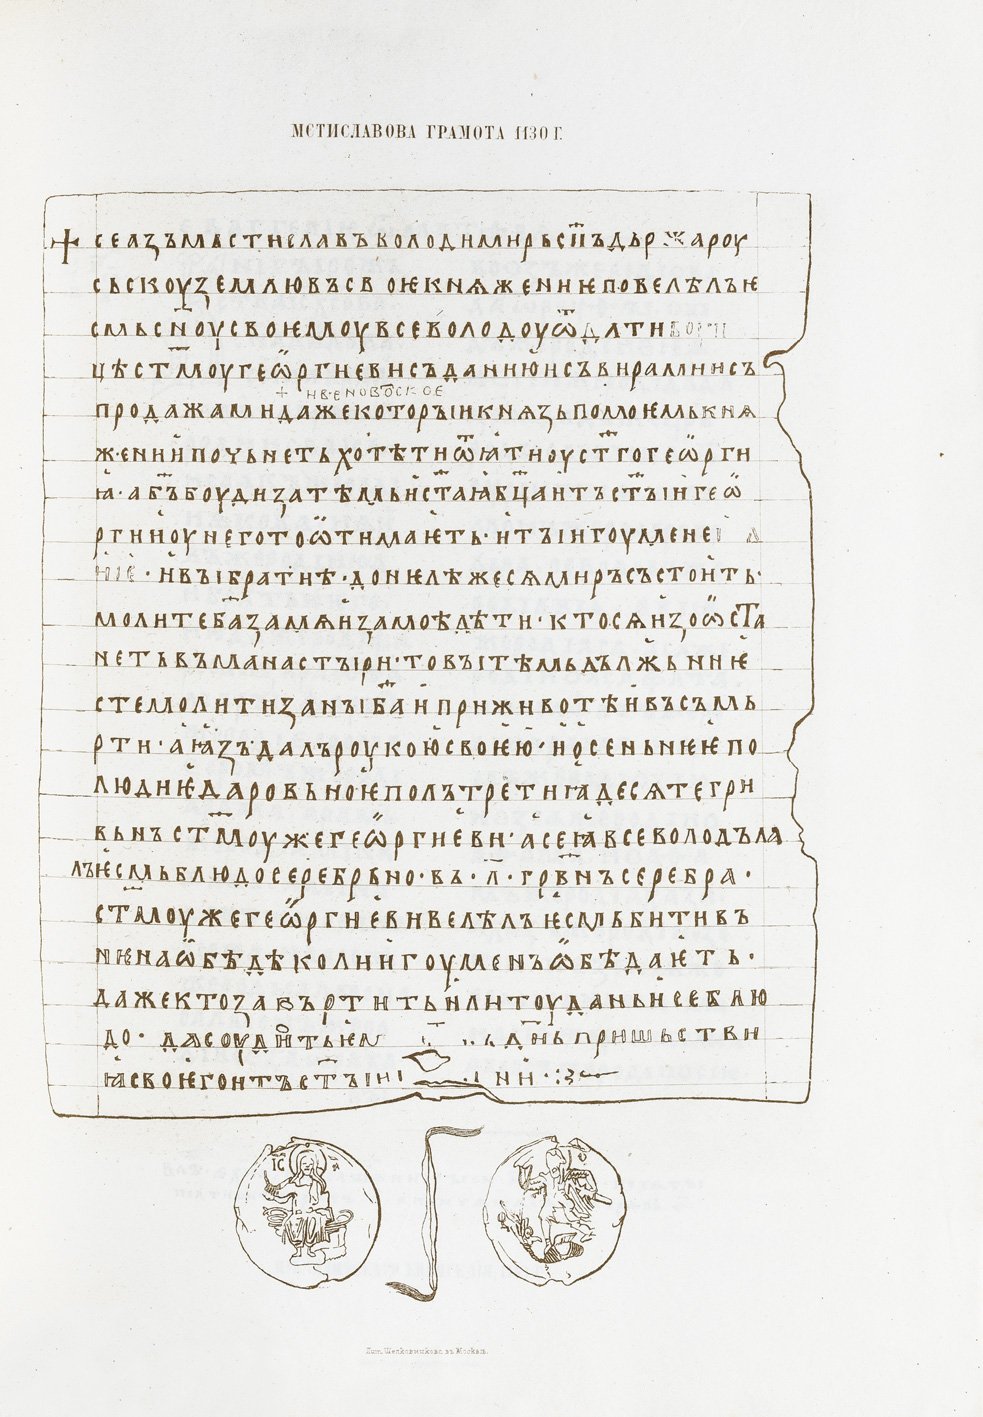 МСТИСЛАВОВА ГРАМОТА 1130 Г.
✢ сеазъмьстиславъволодимирьсн҃ъдьржароу
сьскоуземлювъсвоѥкнѧжениѥповелѣлъѥ
смьсн҃оусвоѥмоувсеволодоуѿдати
цѣст҃моугеѡргиевисъданиюисъвирамиисъ
+ ивеновоскоѥ
продажамидажекоторыикнѧзьпомоѥмькнѧ
жениипочьнетьхотѣтиѿꙗтиоуст҃гогеѡрги
ꙗ·аб҃ъбоудизатѣмьист҃аꙗбц҃аитъст҃ыигеѡ
ргииоунеготоѿтимаѥть·итыигоумене
ние·ивыбратиѣ·донѥлѣжесѧмиръсъстоить·
молитеб҃азамѧизамоѣдѣти·ктосѧизоѡста
нетьвъманастыри·товытѣмьдължьниѥ
стемолитизаныб҃аиприживотѣивъсъмь
рти·аꙗзъдалъроукоюсвоѥю·иосеньнѥѥпо
людиѥдаровьноѥполътретиꙗдесѧтегри
вьнъст҃моужегеѡргиеви·асеꙗвсеволодъда
лъѥсмьблюдосеребрьно·въ·л҃·грв҃нъсеребра·
ст҃моужегеѡргиевивелѣлъѥсмьбитивъ
нѥнаѡбѣдѣколиигоуменъѡбѣдаѥть·
дажектозапъртитьилитоуданьисеблю
до·дасоудитьѥм дн҃ьпришьстви
ꙗсвоѥгоитъст҃ыи
ІС
Лит. Шелковникова въ Москвѣ.